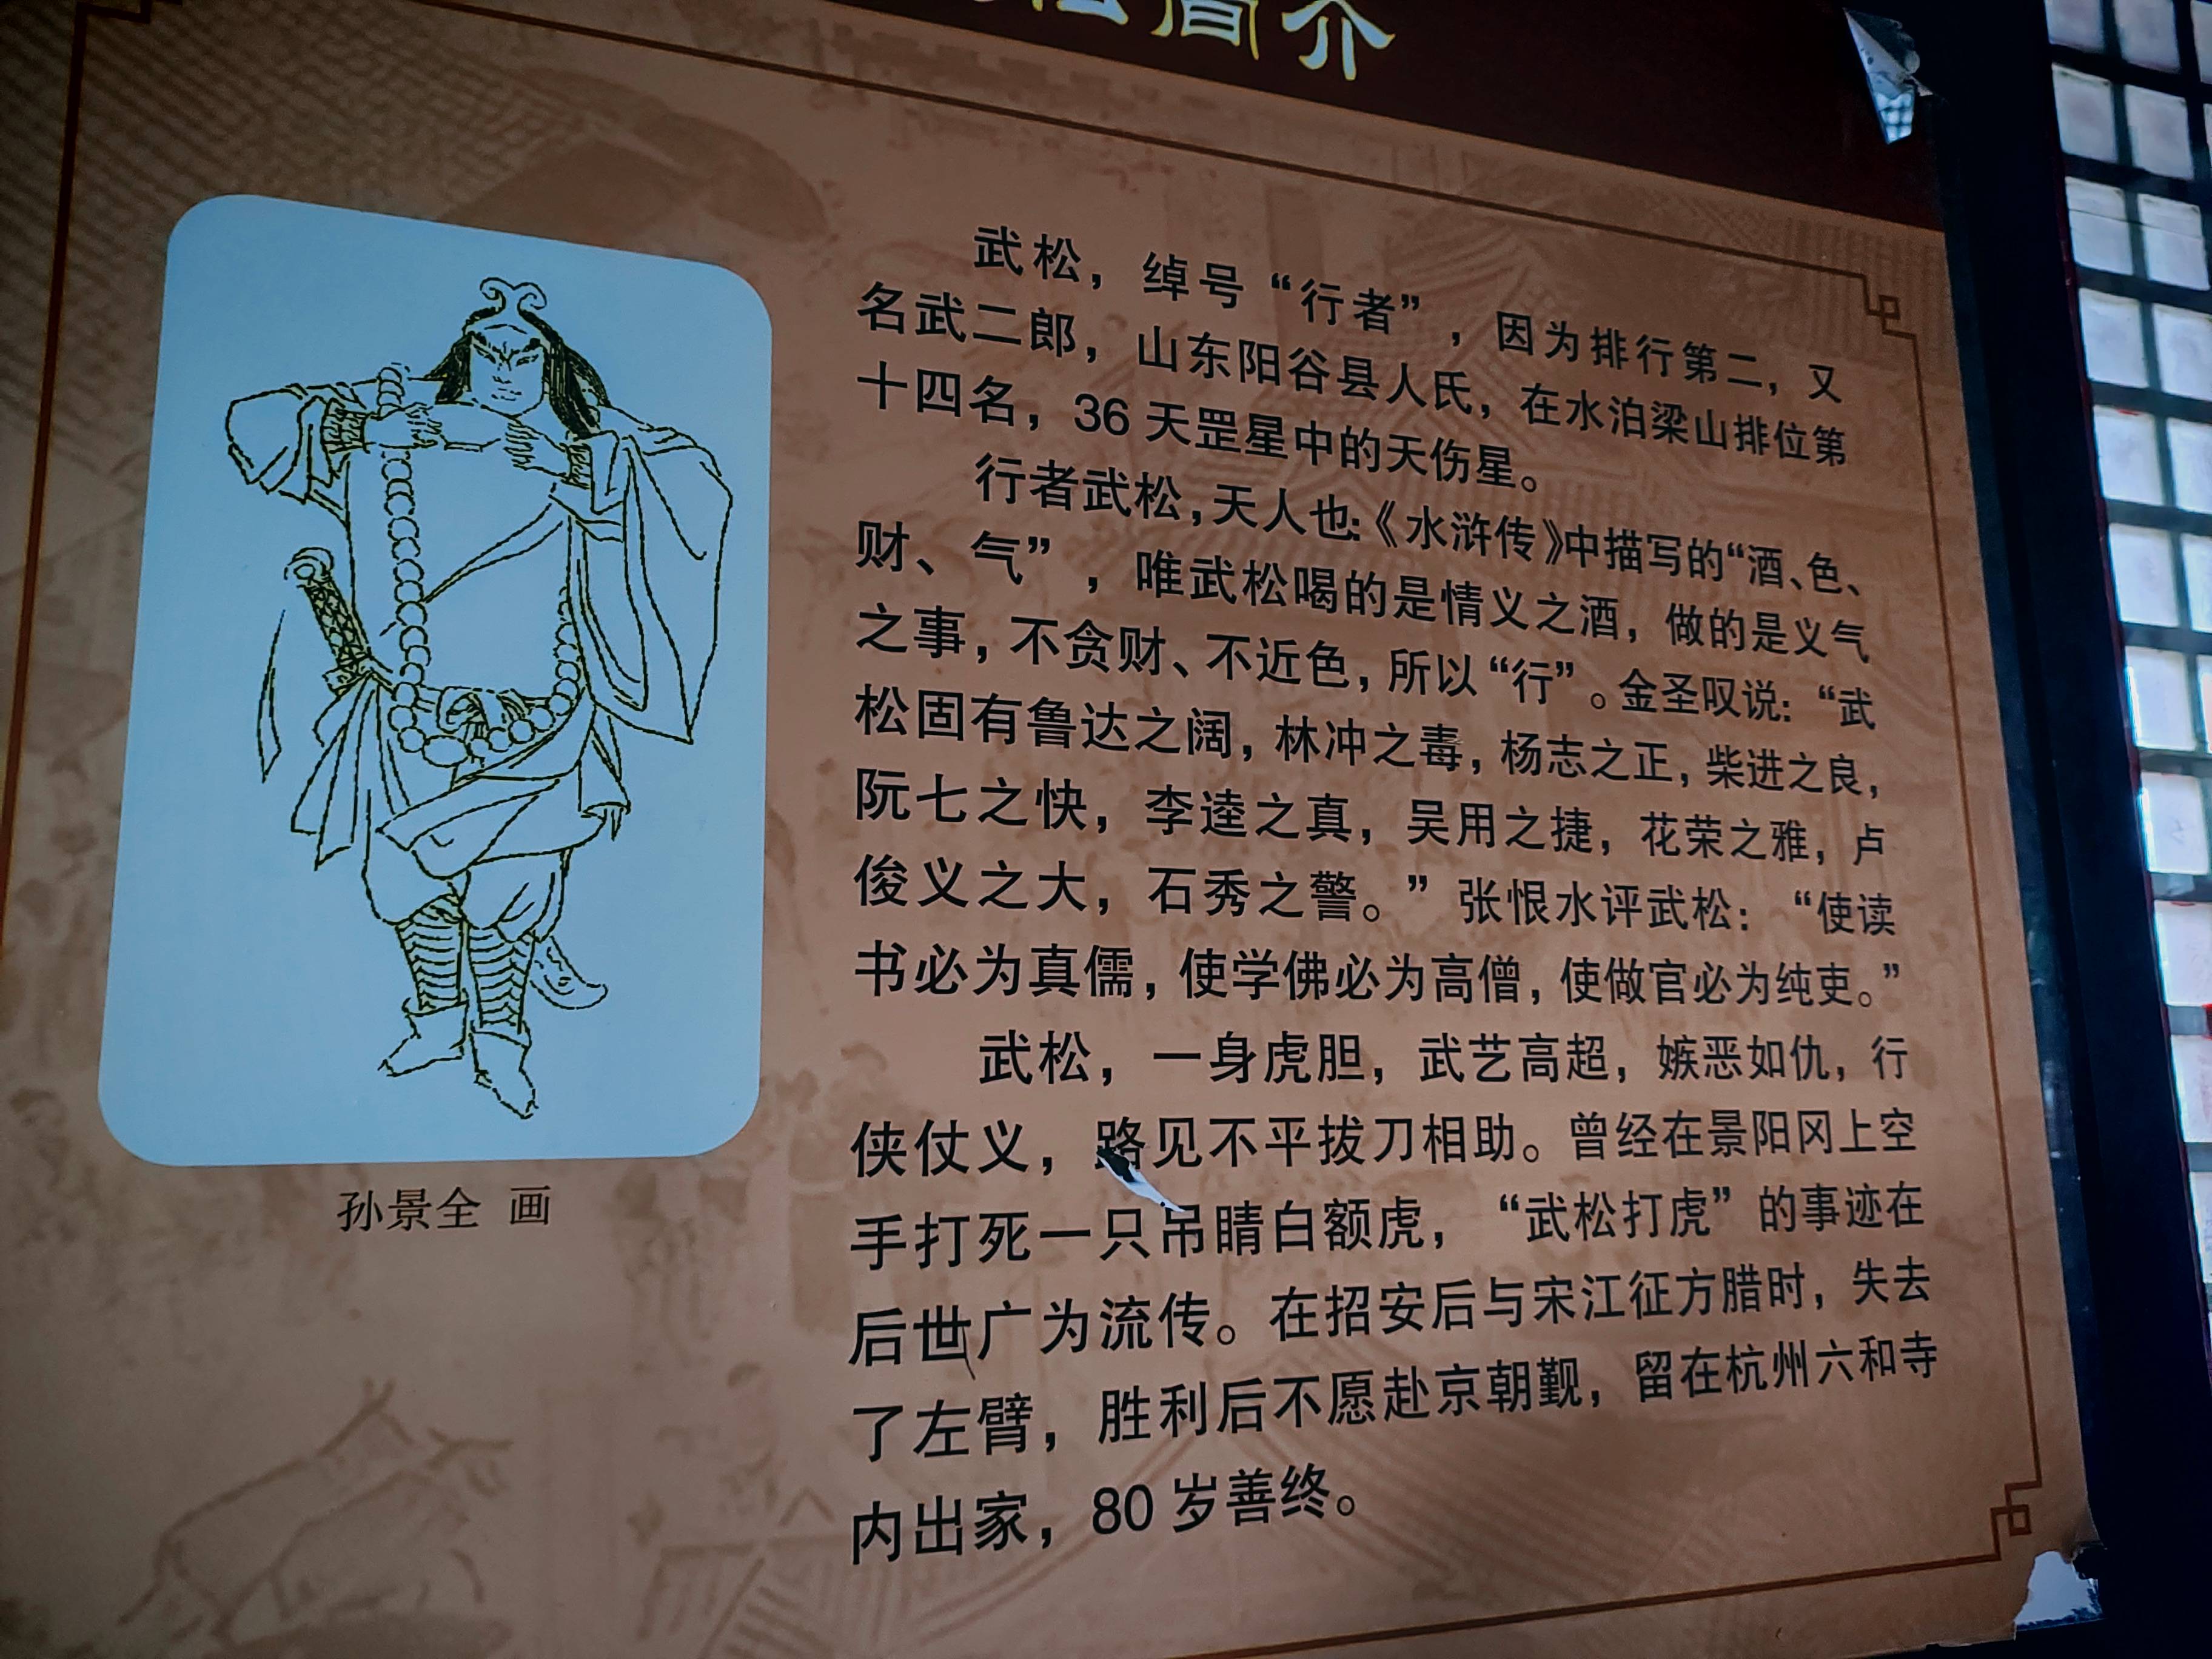 简介
武松，绰号“行者”，因为排行第二，又
名武二郎，山东阳谷县人氏，在水泊梁山排位第
十四名，36天罡星中的天伤星。
行者武松，天人也：《水浒传》中描写的“酒、色、
财、气”，唯武松喝的是情义之酒，做的是义气
之事，不贪财、不近色，所以“行”。金圣叹说：“武
松固有鲁达之阔，林冲之毒，杨志之正，柴进之良，
阮七之快，李逵之真，吴用之捷，花荣之雅，卢
俊义之大，石秀之警。”张恨水评武松：“使读
书必为真儒，使学佛必为高僧，使做官必为纯吏。”
武松，一身虎胆，武艺高超，嫉恶如仇，行
侠仗义，路见不平拔刀相助。曾经在景阳冈上空
手打死一只吊睛白额虎，“武松打虎”的事迹在
后世广为流传。在招安后与宋江征方腊时，失去
了左臂，胜利后不愿赴京朝觐，留在杭州六和寺
内出家，80岁善终。
孙景全 画